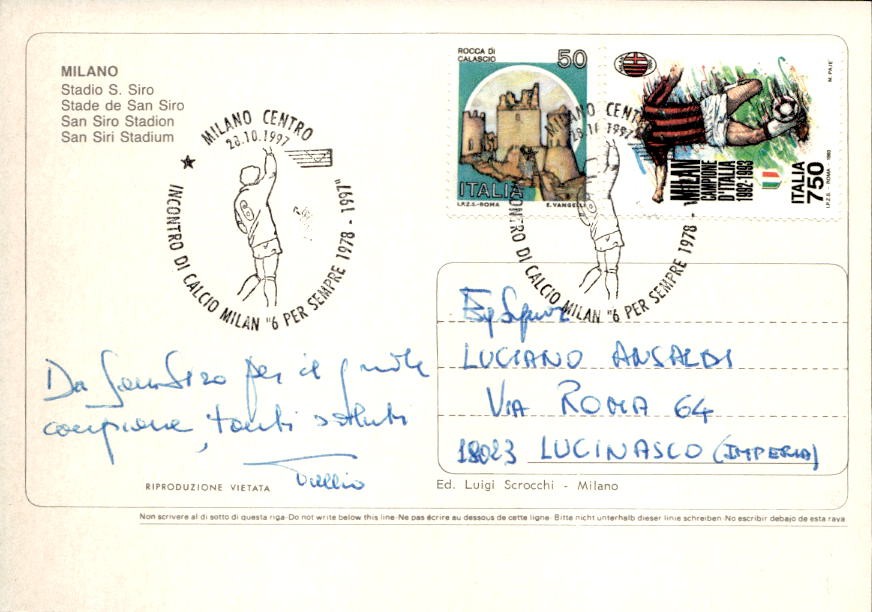 MILANO
Stadio S. Siro
Stade de San Siro
San Siro Stadion
San Siri Stadium
MILANO CENTRO
28.10.1997
INCONTRO DI CALCIO MILAN "6 PER SEMPRE 1978 - 1997"
ROCCA DI
CALASCIO
50
ITALIA
I.P.Z.S.-ROMA E. VANGELLI
M. PAIE'
MILAN
CAMPIONE
D'ITALIA
1992-1993
ITALIA
750
I.P.Z.S. - ROMA - 1993
MILANO CENTRO
28.10.1997
INCONTRO DI CALCIO MILAN "6 PER SEMPRE 1978 -
Da San Siro per il grande
campione, tanti saluti
Egr Signor
LUCIANO ANSALDI
VIA ROMA 64
18023 LUCINASCO (IMPERIA)
RIPRODUZIONE VIETATA
Ed. Luigi Scrocchi - Milano
Non scrivere al di sotto di questa riga-Do not write below this line-Ne pas écrire au dessous de cette ligne-Bitte nicht unterhalb dieser linie schreiben-No escribir debajo de esta raya